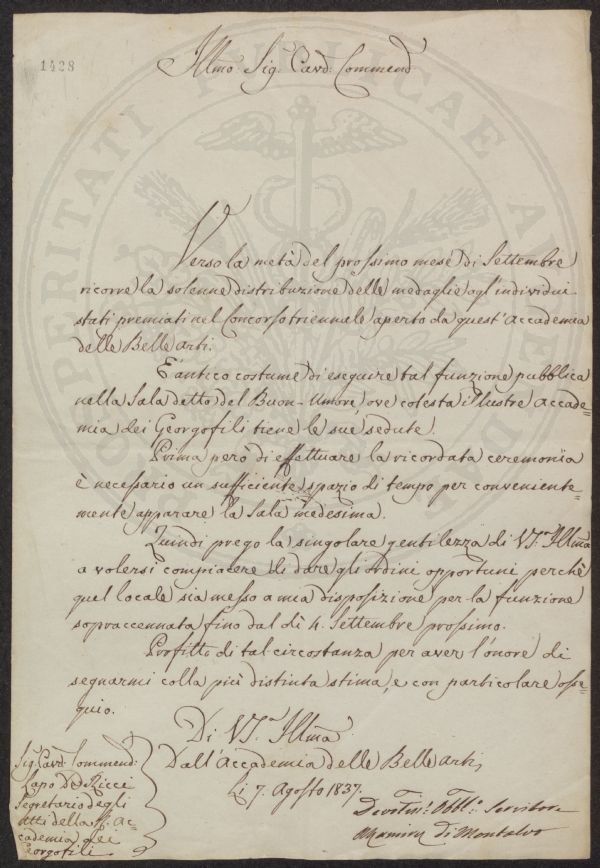 1428
Illmo Sig. Cavd. Commend.
Verso la metà del prossimo mese di Settembre
ricorre la solenne distribuzione delle medaglie agl'individui
stati premiati nel Concorso triennale aperto da quest'Accademia
delle Belle arti.
È antico costume di eseguire tal funzione pubblica
nella Sala detto del Buon-Umore ove cotesta illustre accade=
mia dei Georgofili tiene le sue sedute.
Prima però di effettuare la ricordata ceremonia
è necessario un sufficiente spazio di tempo per conveniente=
mente apparare la Sala medesima.
Quindi prego la singolare gentilezza di VS. Illma
a volersi compiacere di dare gli ordini opportuni perchè
quel locale sia messo a mia disposizione per la funzione
sopraccennata fino dal dì 4. Settembre prossimo.
Profitto di tal circostanza per aver l'onore di
segnarmi colla più distinta stima, e con particolare osse=
quio.
Di VS. Illma
Dall'Accademia delle Belle arti,
Li 7. Agosto 1837.
Devotis. Obbl. Servitore
Ramirez Di Montalvo
Sig. Cavd. Commend.
Lapo De Ricci
Segretario degli
Atti della Ac=
cademia dei
Georgofili
PROSPERITATI PUBLICAE AUGENDAE